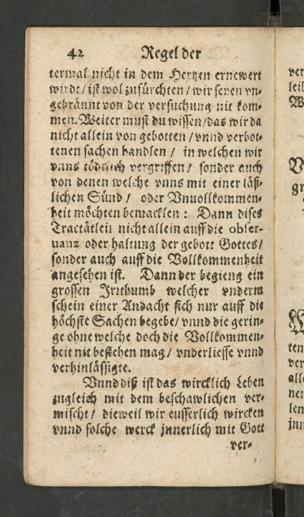 42 Regel der
termal nicht in dem Hertzen ernewert
wirde / ist wol zufürchten / wir seyen vn-
gebrännt von der versuchung nit kom-
men. Weiter must du wissen / das wir da
nicht allein von gebotten / vnnd verbot-
tenen sachen handlen / in welchen wir
vnns tödtlich vergriffen / sonder auch
von denen welche vnns mit einer läß-
lichen Sünd / oder Vnuollkommen-
heit möchten bemacklen : Dann dises
Tractätlein nicht allein auff die obser-
uanz oder haltung der gebott Gottes /
sonder auch auff die Vollkommenheit
angesehen ist. Dann der begieng ein
grossen Irrthumb welcher vnderm
schein einer Andacht sich nur auff die
höchste Sachen begebe / vnnd die gerin-
ge ohne welche doch die Vollkommen-
heit nit bestehen mag / vnderliesse vnnd
verhinlässigte.
Vnnd diß ist das wircklich Leben
zugleich mit dem beschawlichen ver-
mischt / dieweil wir eusserlich wircken
vnnd solche werck jnnerlich mit Gott
ver-